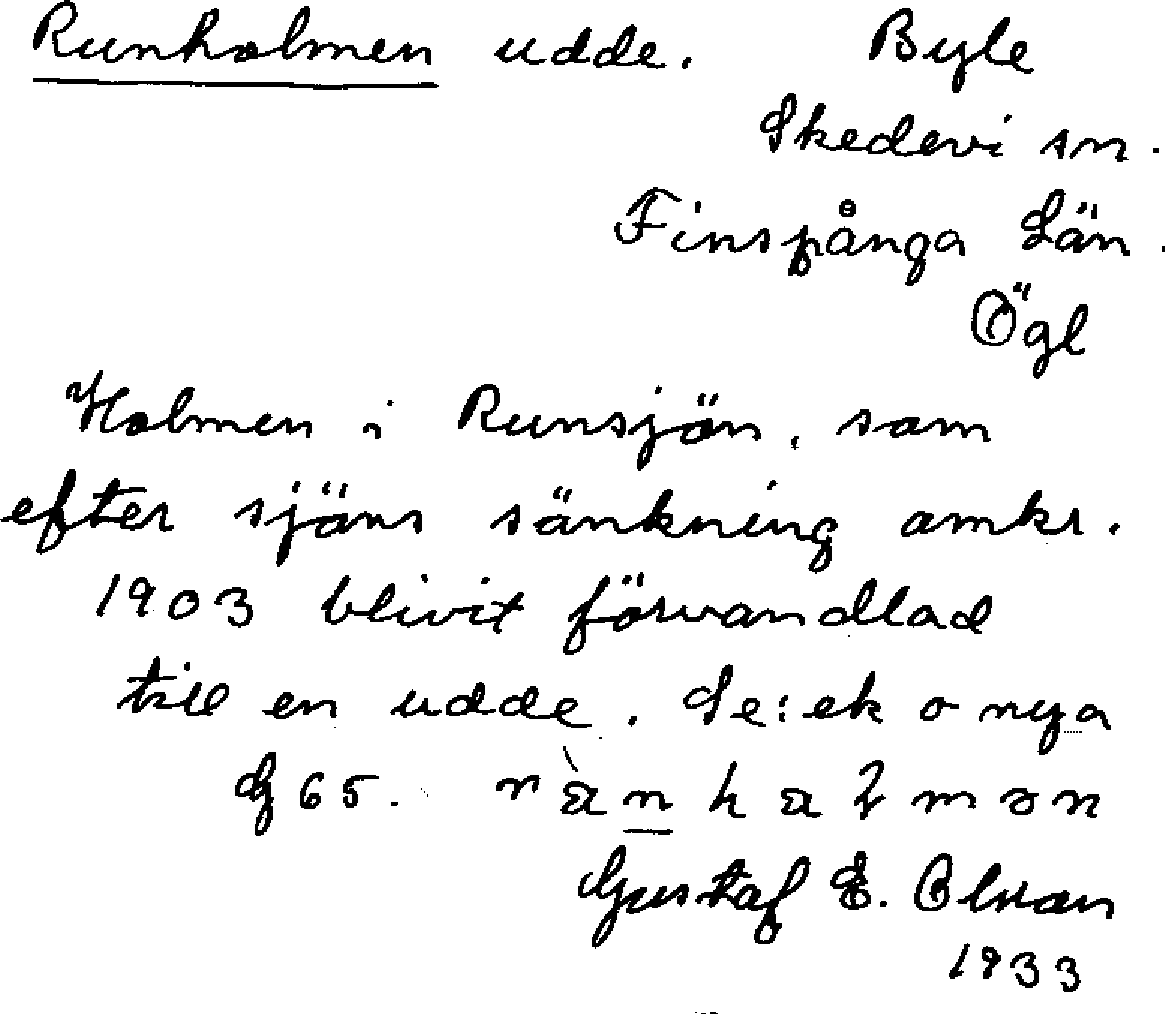 Runholmen udde. Byle
Skedevi sn.
Finspånga Län.
Ögl
Holmen i Runsjön, som
efter sjöns sänkning omkr.
1903 blivit förvandlad
till en udde. Se: ek o nya
G 65.
Gustaf E. Olson
1933